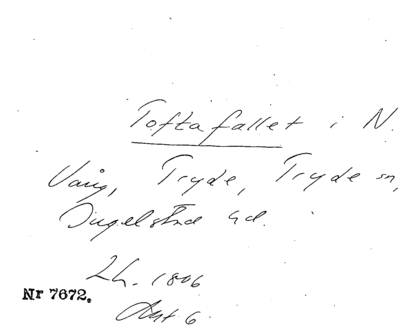 Toftafallet i N.
Vång, Tryde, Tryde sn,
Ingelstad hd.
Lh. 1806
Nr 7672.
Akt 6